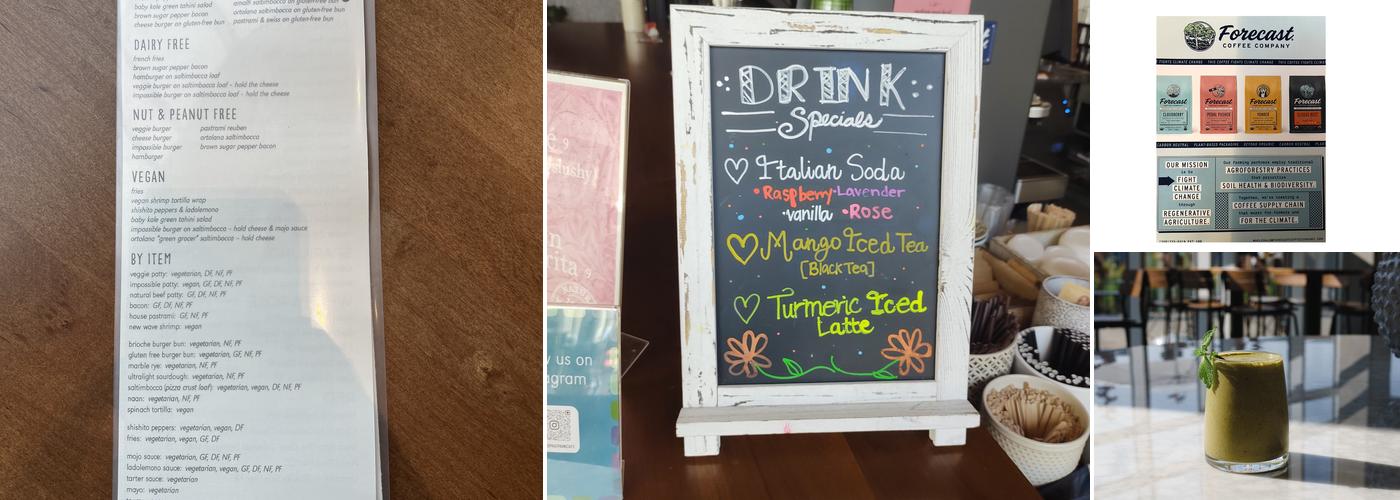 baby kale green tahini salad
brown sugar pepper bacon
cheese burger on gluten-free bun
amalfi saltimbocca on gluten-free bun
ortolana saltimbocca on gluten-free bun
pastrami & swiss on gluten-free bun
DAIRY FREE
french fries
brown sugar pepper bacon
hamburger on saltimbocca loaf
veggie burger on saltimbocca loaf - hold the cheese
impossible burger on saltimbocca loaf - hold the cheese
NUT & PEANUT FREE
veggie burger
cheese burger
impossible burger
hamburger
pastrami reuben
ortolana saltimbocca
brown sugar pepper bacon
VEGAN
fries
vegan shrimp tortilla wrap
shishito peppers & ladolemono
baby kale green tahini salad
impossible burger on saltimbocca - hold cheese & mojo sauce
ortolana "green grocer" saltimbocca - hold cheese
BY ITEM
veggie patty: vegetarian, DF, NF, PF
impossible patty: vegan, GF, DF, NF, PF
natural beef patty: GF, DF, NF, PF
bacon: GF, DF, NF, PF
house pastrami: GF, NF, PF
new wave shrimp: vegan
brioche burger bun: vegetarian, NF, PF
gluten free burger bun: vegetarian, GF, NF, PF
marble rye: vegetarian, NF, PF
ultralight sourdough: vegetarian, NF, PF
saltimbocca (pizza crust loaf): vegetarian, vegan, DF, NF, PF
naan: vegetarian, NF, PF
spinach tortilla: vegan
shishito peppers: vegetarian, vegan, DF
fries: vegetarian, vegan, GF, DF
mojo sauce: vegetarian, GF, DF, NF, PF
ladolemono sauce: vegetarian, vegan, GF, DF, NF, PF
tarter sauce: vegetarian
mayo: vegetarian
DRINK
Specials
Italian Soda
•Raspberry •Lavender
•vanilla •Rose
Mango Iced Tea
[Black Tea]
Turmeric Iced
Latte
slushy
rita 9
us on
agram
Forecast
COFFEE COMPANY
FIGHTS CLIMATE CHANGE THIS COFFEE FIGHTS CLIMATE CHANGE THIS COFFEE FIGHTS
Forecast
CLOUDBERRY
Forecast
PEDAL PUSHER
Forecast
YONDER
Forecast
CARBON NEUTRAL PLANT-BASED PACKAGING BEYOND ORGANIC CARBON NEUTRAL
OUR MISSION
is to
FIGHT
CLIMATE
CHANGE
through
REGENERATIVE
AGRICULTURE.
Our farming partners employ traditional
AGROFORESTRY PRACTICES
that prioritize
SOIL HEALTH & BIODIVERSITY.
Together, we're creating a
COFFEE SUPPLY CHAIN
that works for farmers and
FOR THE CLIMATE.